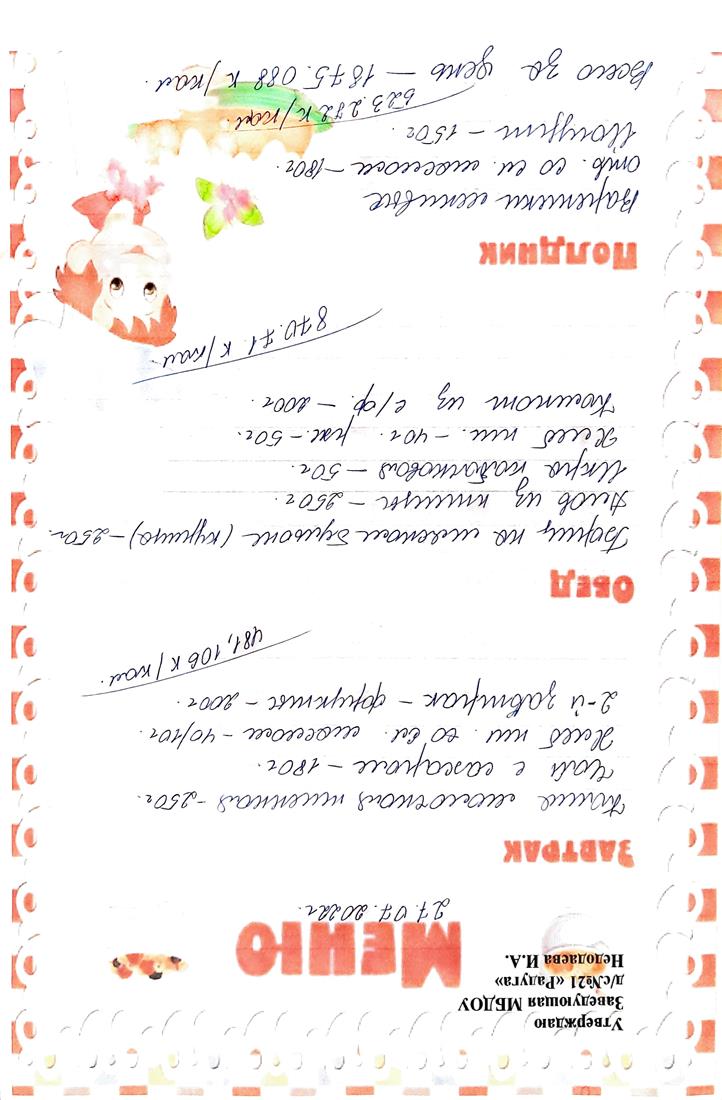 Утверждаю
Заведующая МБДОУ
д/с№21 «Радуга»
Недодаева И.А.
Меню
27.07.2022г.
Завтрак
Каша молочная пшенная - 250г.
Чай с сахаром - 180г.
Хлеб пш. со сл. маслом - 40/10г.
2-й завтрак - фрукты - 200г.
481,106 к/кал.
Обед
Борщ на мясном бульоне (курица) - 250г.
Плов из птицы - 250г.
Икра кабачковая - 50г.
Хлеб пш. - 40г. рж. - 50г.
Компот из с/ф. - 200г.
870.71. к/кал.
Полдник
Вареники ленивые
отв. со сл. маслом - 180г.
Йогурт - 150г.
523.272 к/кал.
Всего за день - 1875.088 к/кал.